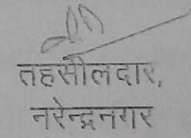 तहसीलदार,
नरेन्द्रनगर